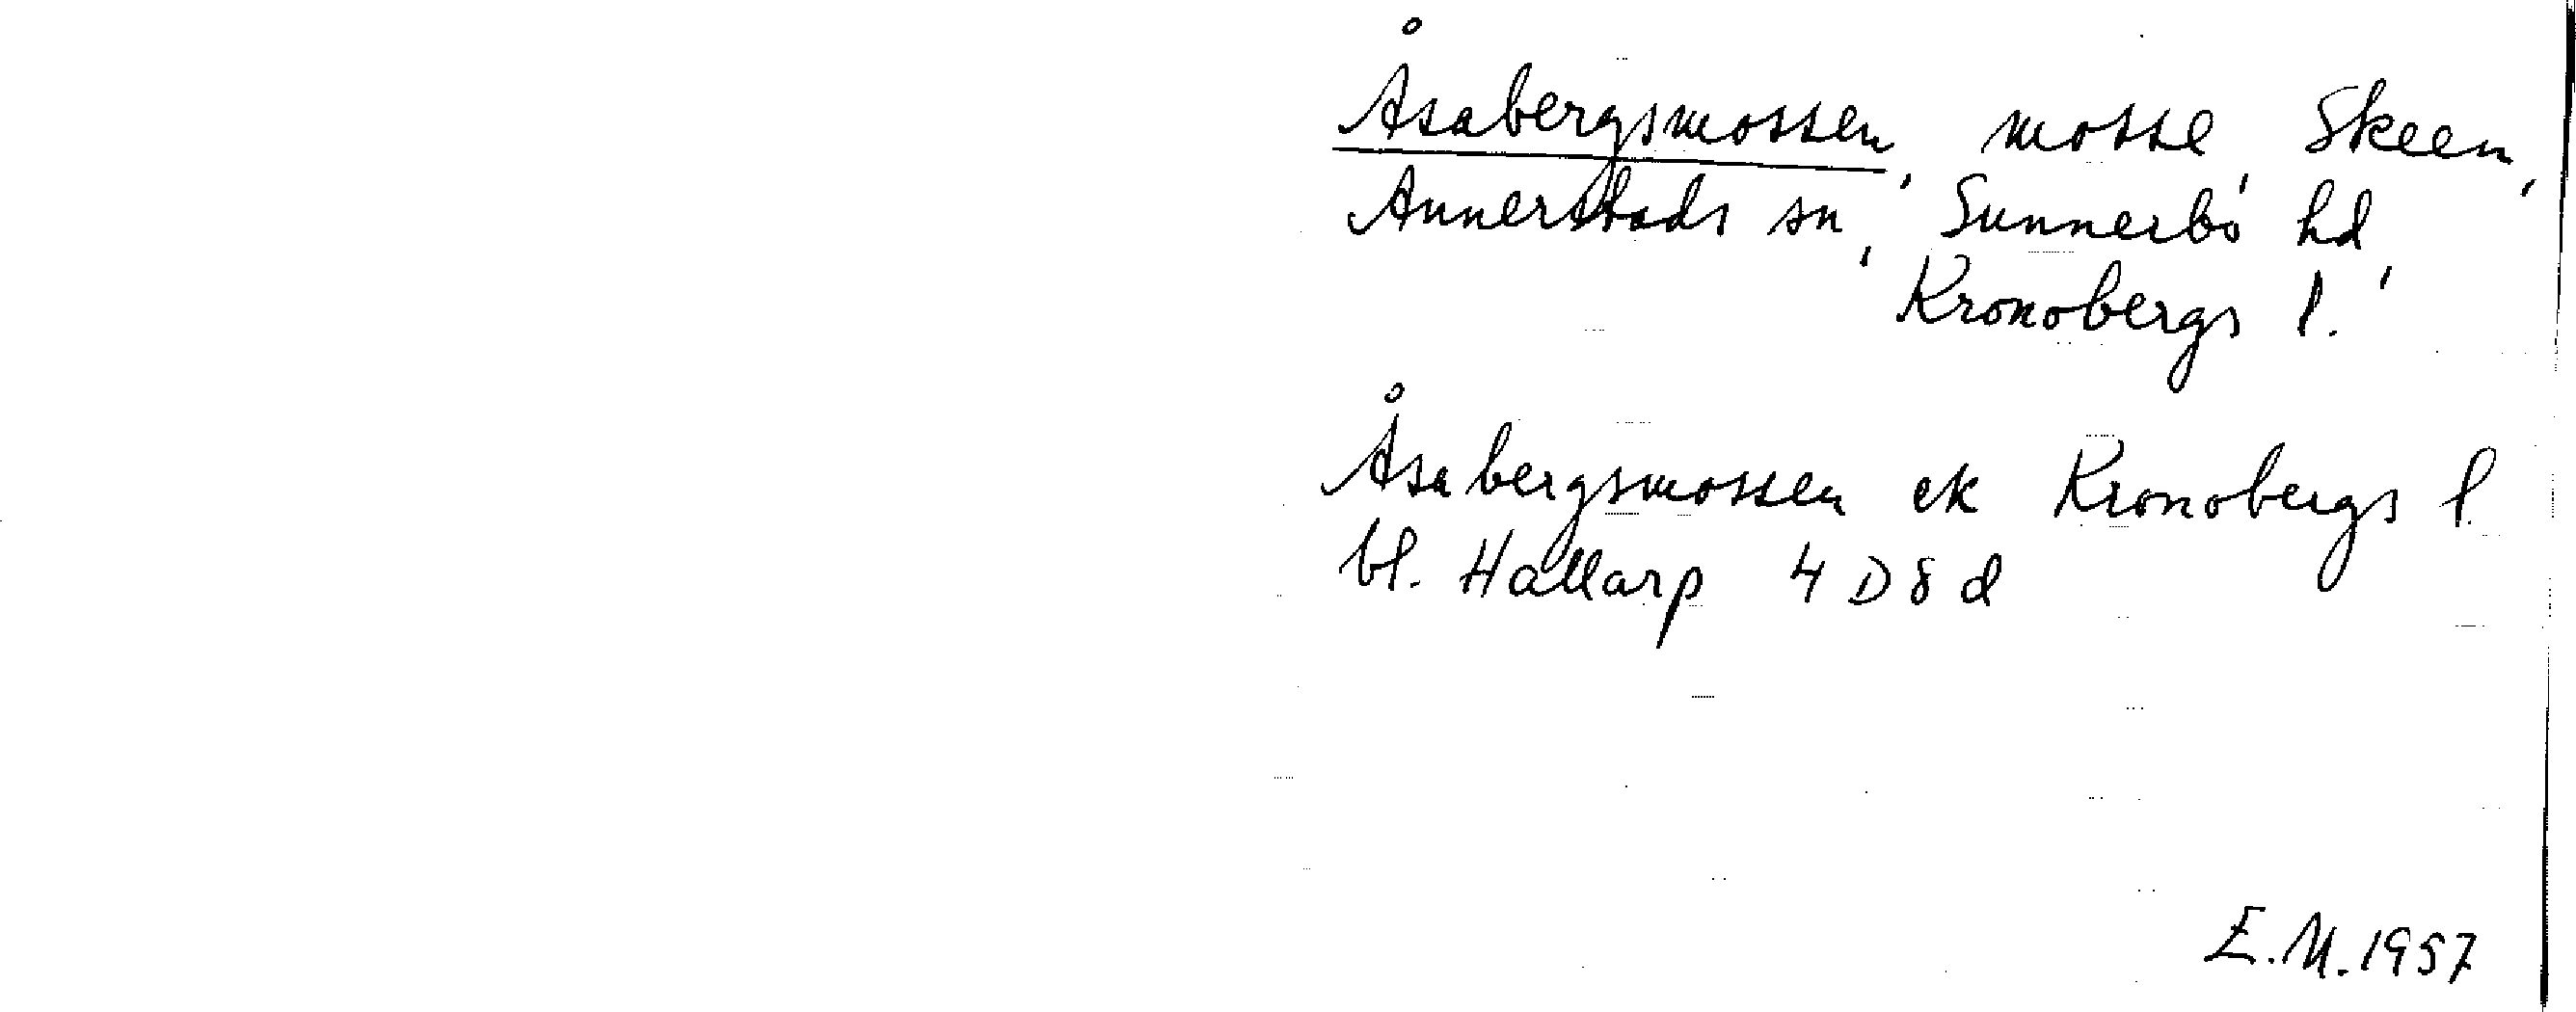 Åsabergsmossen, mosse, Skeen,
Annerstads sn, Sunnerbo hd,
Kronobergs l.
Åsabergsmossen ek Kronobergs l.
bl. Hallarp 4 D 8 d
E.M. 1957